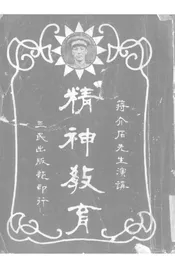 蔣介石先生演講
精神教育
三民出版部印行